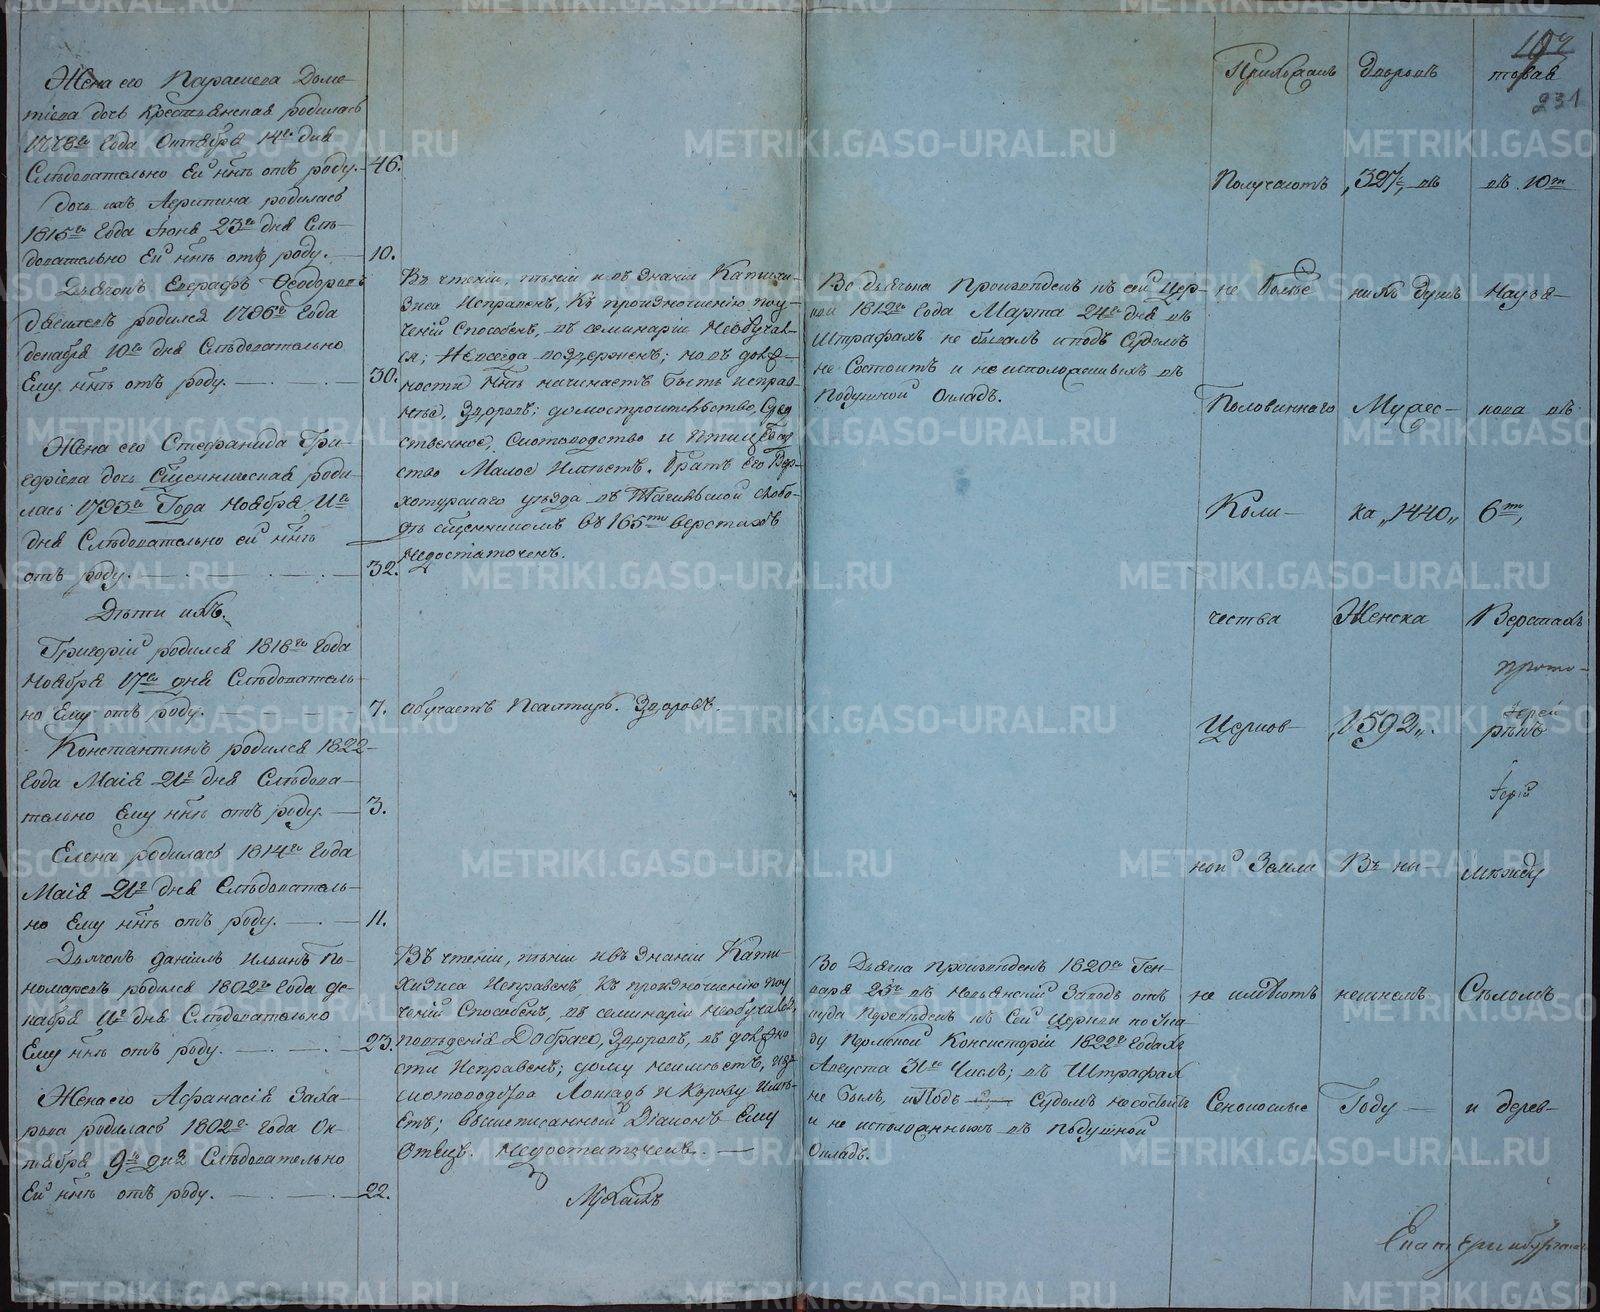 Жена его Парасковa Доме-
тіева дочь крестьянская родилась
1778го Года Октября 14го дня
Слѣдовательно Ей ннѣ отъ роду. 46.
дочь ихъ Агрипина родилась
1815го Года Іюня 23го дня Слѣ-
довательно Ей ннѣ отъ роду. 10.
Дьячокъ Еграфъ Ѳеодоровъ
родился 1795го Года
декабря 10го дня Слѣдовательно
Ему ннѣ отъ роду. 30.
Жена его Стефанида Гри-
горіева дочь Сщенническая роди-
лась 1793го Года Ноября
дня Слѣдовательно ей ннѣ
отъ роду. 32.
Дѣти ихъ.
Григорій родился 1818го Года
Ноября 17го дня Слѣдователь-
но Ему отъ роду. 7.
Константинъ родился 1822
Года Маія 21го дня Слѣдова-
тельно Ему ннѣ отъ роду. 3.
Елена родилась 1814го Года
Маія 21го дня Слѣдователь-
но Ему ннѣ отъ роду. 11.
Дьячокъ Даніилъ Ильинъ По-
номаревъ родился 1802го Года де-
кабря дня Слѣдовательно
Ему ннѣ отъ роду. 23.
Жена его Афанасія Заха-
рова родилась 1802го Года Ок-
тября 9го дня Слѣдовательно
Ей ннѣ отъ роду. 22.
Въ чтеніи, пѣніи и въ знаніи Катихи-
зиса Исправенъ, Къ произношенію поу-
ченій Способенъ, въ семинаріи Необучал-
ся; Невсегда воздерженъ; но въ долж-
ности ннѣ начинаетъ быть исправ-
нѣе, Здоровъ; домостроительство Сред
ственное, скотоводство и Птице
ство Малое Имѣетъ. Братъ его Вер-
хотурскаго уѣзда въ Тагильской слобо-
дѣ сщенникомъ въ 165ти верстахъ
Недостаточенъ.
обучаетъ Псалтирь. Здоровъ.
Въ чтеніи, пѣніи и въ Знаніи Кати-
хизиса Исправенъ, Къ произношенію поу
ченій Способенъ, въ семинаріи необучался,
поведенія Добраго, Здоровъ, въ должно
сти Исправенъ; дому неимѣетъ, изъ
скотоводства Лошадь и Корову Имѣ-
етъ; Вышеписанный Діаконъ Ему
Отецъ. Недостаточенъ.
Во дьячка Произведенъ къ сей Цер-
кви 1812го Года Марта 24го дня въ
Штрафахъ не бывалъ и подъ Судомъ
не Состоитъ и не исполозшихъ въ
Подушной Окладъ.
Во Дьячка Произведенъ 1820го Ген-
варя 23го въ Невьянскій Заводъ от
куда Переведенъ къ Сей Церкви по Ука
зу Пермской Консисторіи 1822го Года
Августа 31го Числа; въ Штрафахъ
не былъ, и Подъ Судомъ несостоитъ
и не въ подушной
Окладъ.
Прихожанъ Дворовъ товая
107
231
Получаютъ „327„ въ въ 10ти
не болѣе нихъ душъ Мужe-
Половиннаго Мужес- кова въ
Коли- ка „1440„ 6ти,
чества Женска Верстахъ
прото-
іерей
Церков- „1592„. рѣкъ
Іерей
ной Земли Въ ны между
не имѣютъ нешнемъ Селомъ
Сенокосные Году — и дерев-
Екатеринбургскаго